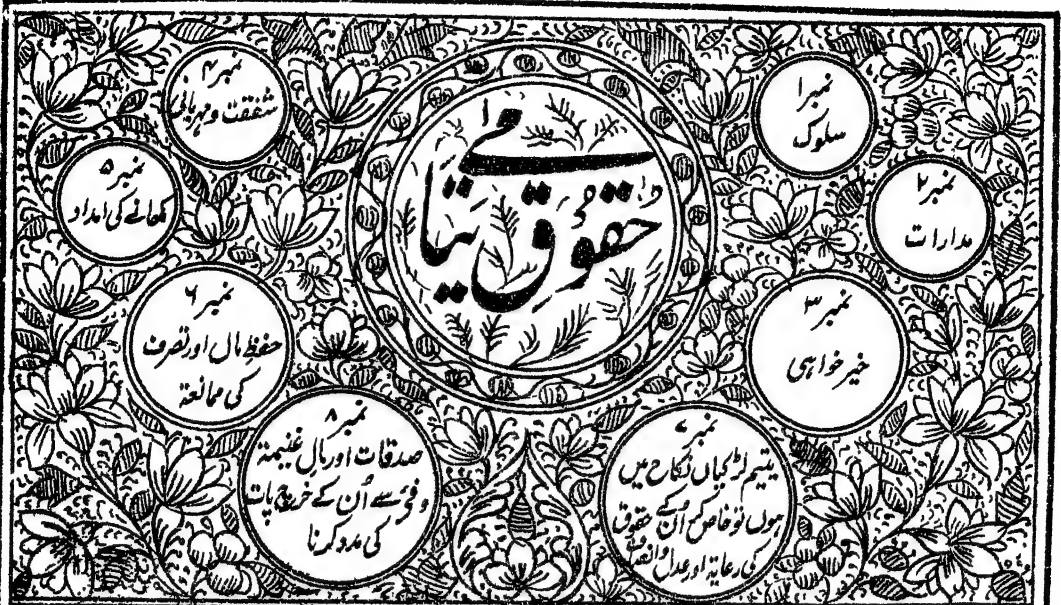 حقوق یتامیٰ
نمبر ۱
سلوک
نمبر ۲
مدارات
نمبر ۳
خیر خواہی
نمبر ۴
شفقت و مہربانی
نمبر ۵
کھانے کی امداد
نمبر ۶
حفظِ مال اور تصرف
کی ممانعۃ
نمبر ۷
یتیم لڑکیاں نکاح میں
ہوں تو خاص کر اُن کے حقوق
کی رعایۃ اور عدل و انصاف
نمبر ۸
صدقات اور مالِ غنیمۃ
و فیٔ سے اُن کے خرچ پات
کی مدد کرنا